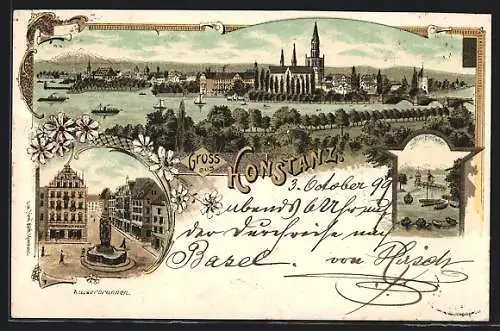 Gruss
aus
KONSTANZ.
3. October 99
abends 6 Uhr auf
der Durchreise nach
Basel. von Hirsch
Kaiserbrunnen.